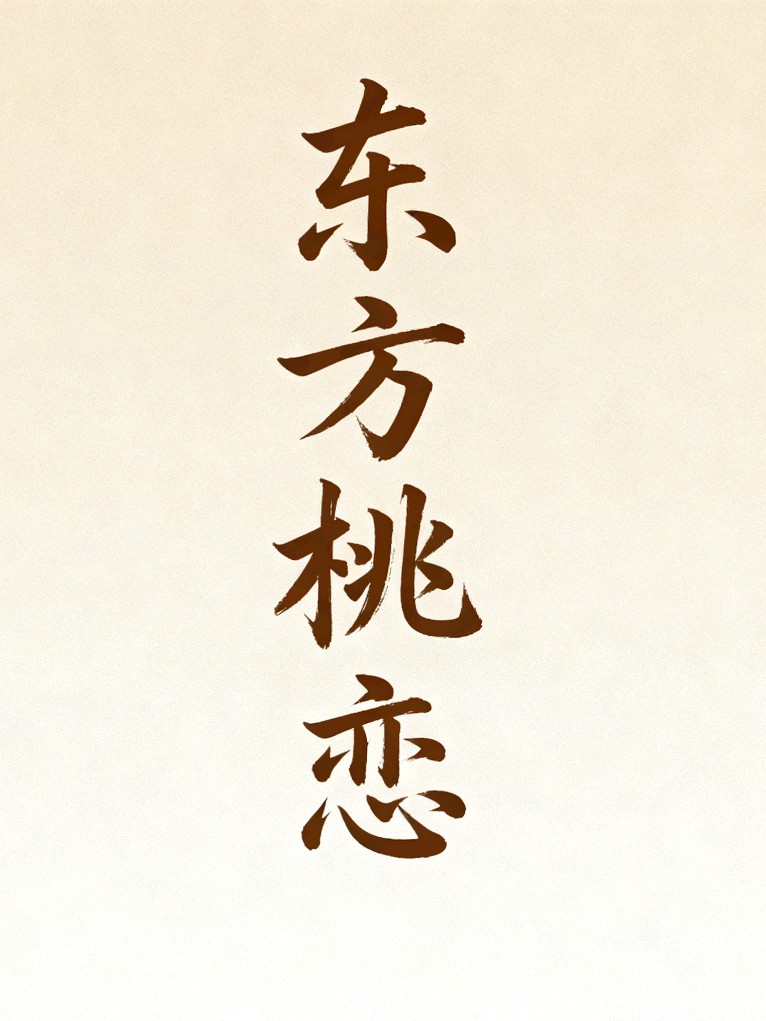 东方桃恋